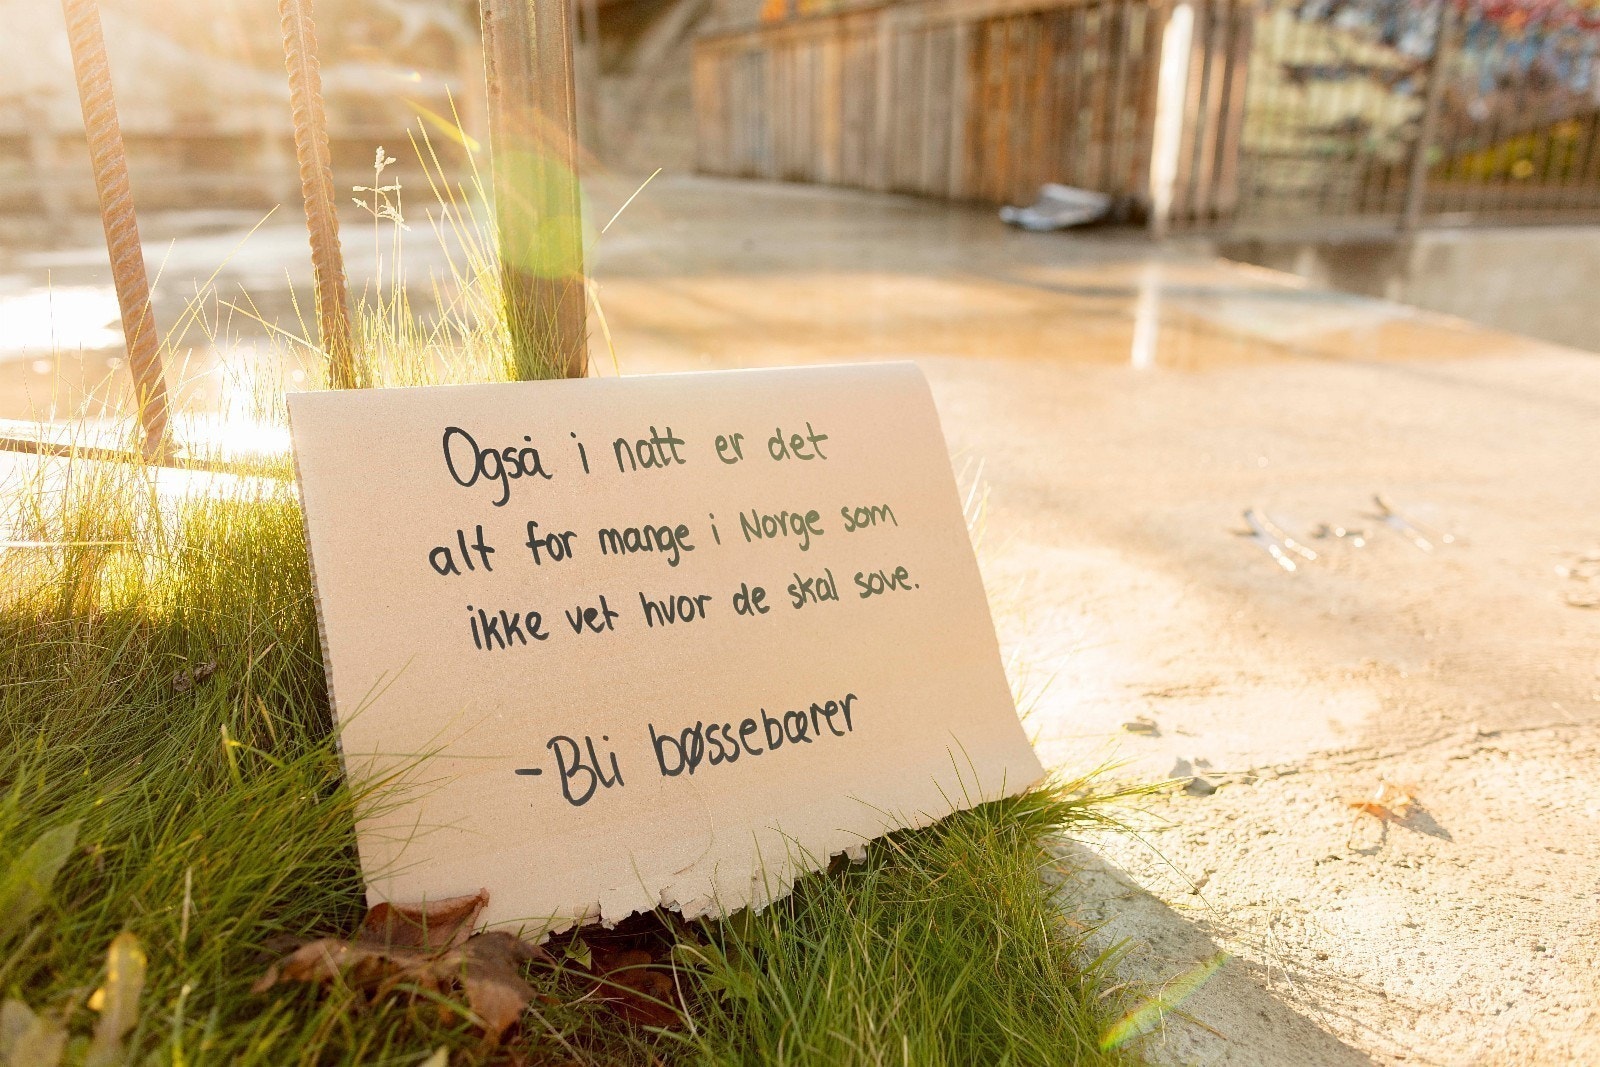 Også i natt er det
alt for mange i Norge som
ikke vet hvor de skal sove.
-Bli bøssebærer